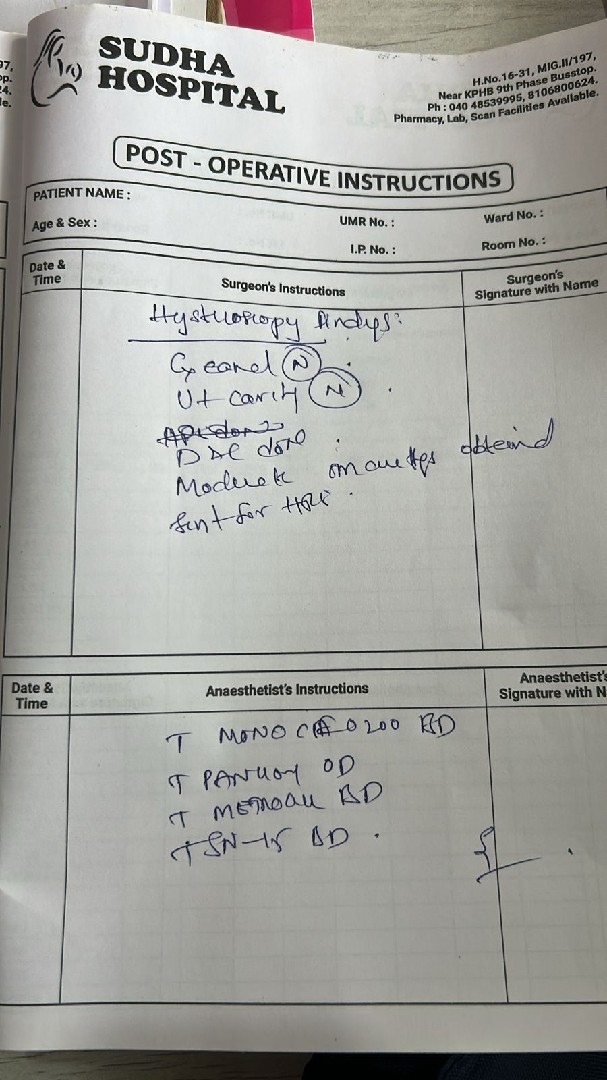 97,
op.
24.
le.
SUDHA
HOSPITAL
H.No.16-31, MIG.II/197,
Near KPHB 9th Phase Busstop.
Ph : 040 48539995, 8106800624.
Pharmacy, Lab, Scan Facilities Available.
POST - OPERATIVE INSTRUCTIONS
PATIENT NAME :
Age & Sex :
UMR No. :
Ward No. :
I.P. No. :
Room No. :
Date &
Time
Surgeon's Instructions
Surgeon's
Signature with Name
Hysteroscopy findings:
Cx canal (N)
Ut cavity (N)
D&C done
Moderate obtained
Sent for HPE.
Date &
Time
Anaesthetist's Instructions
Anaesthetist's
Signature with N
T MONOCEF O 200 BD
T OD
T BD
T BD.